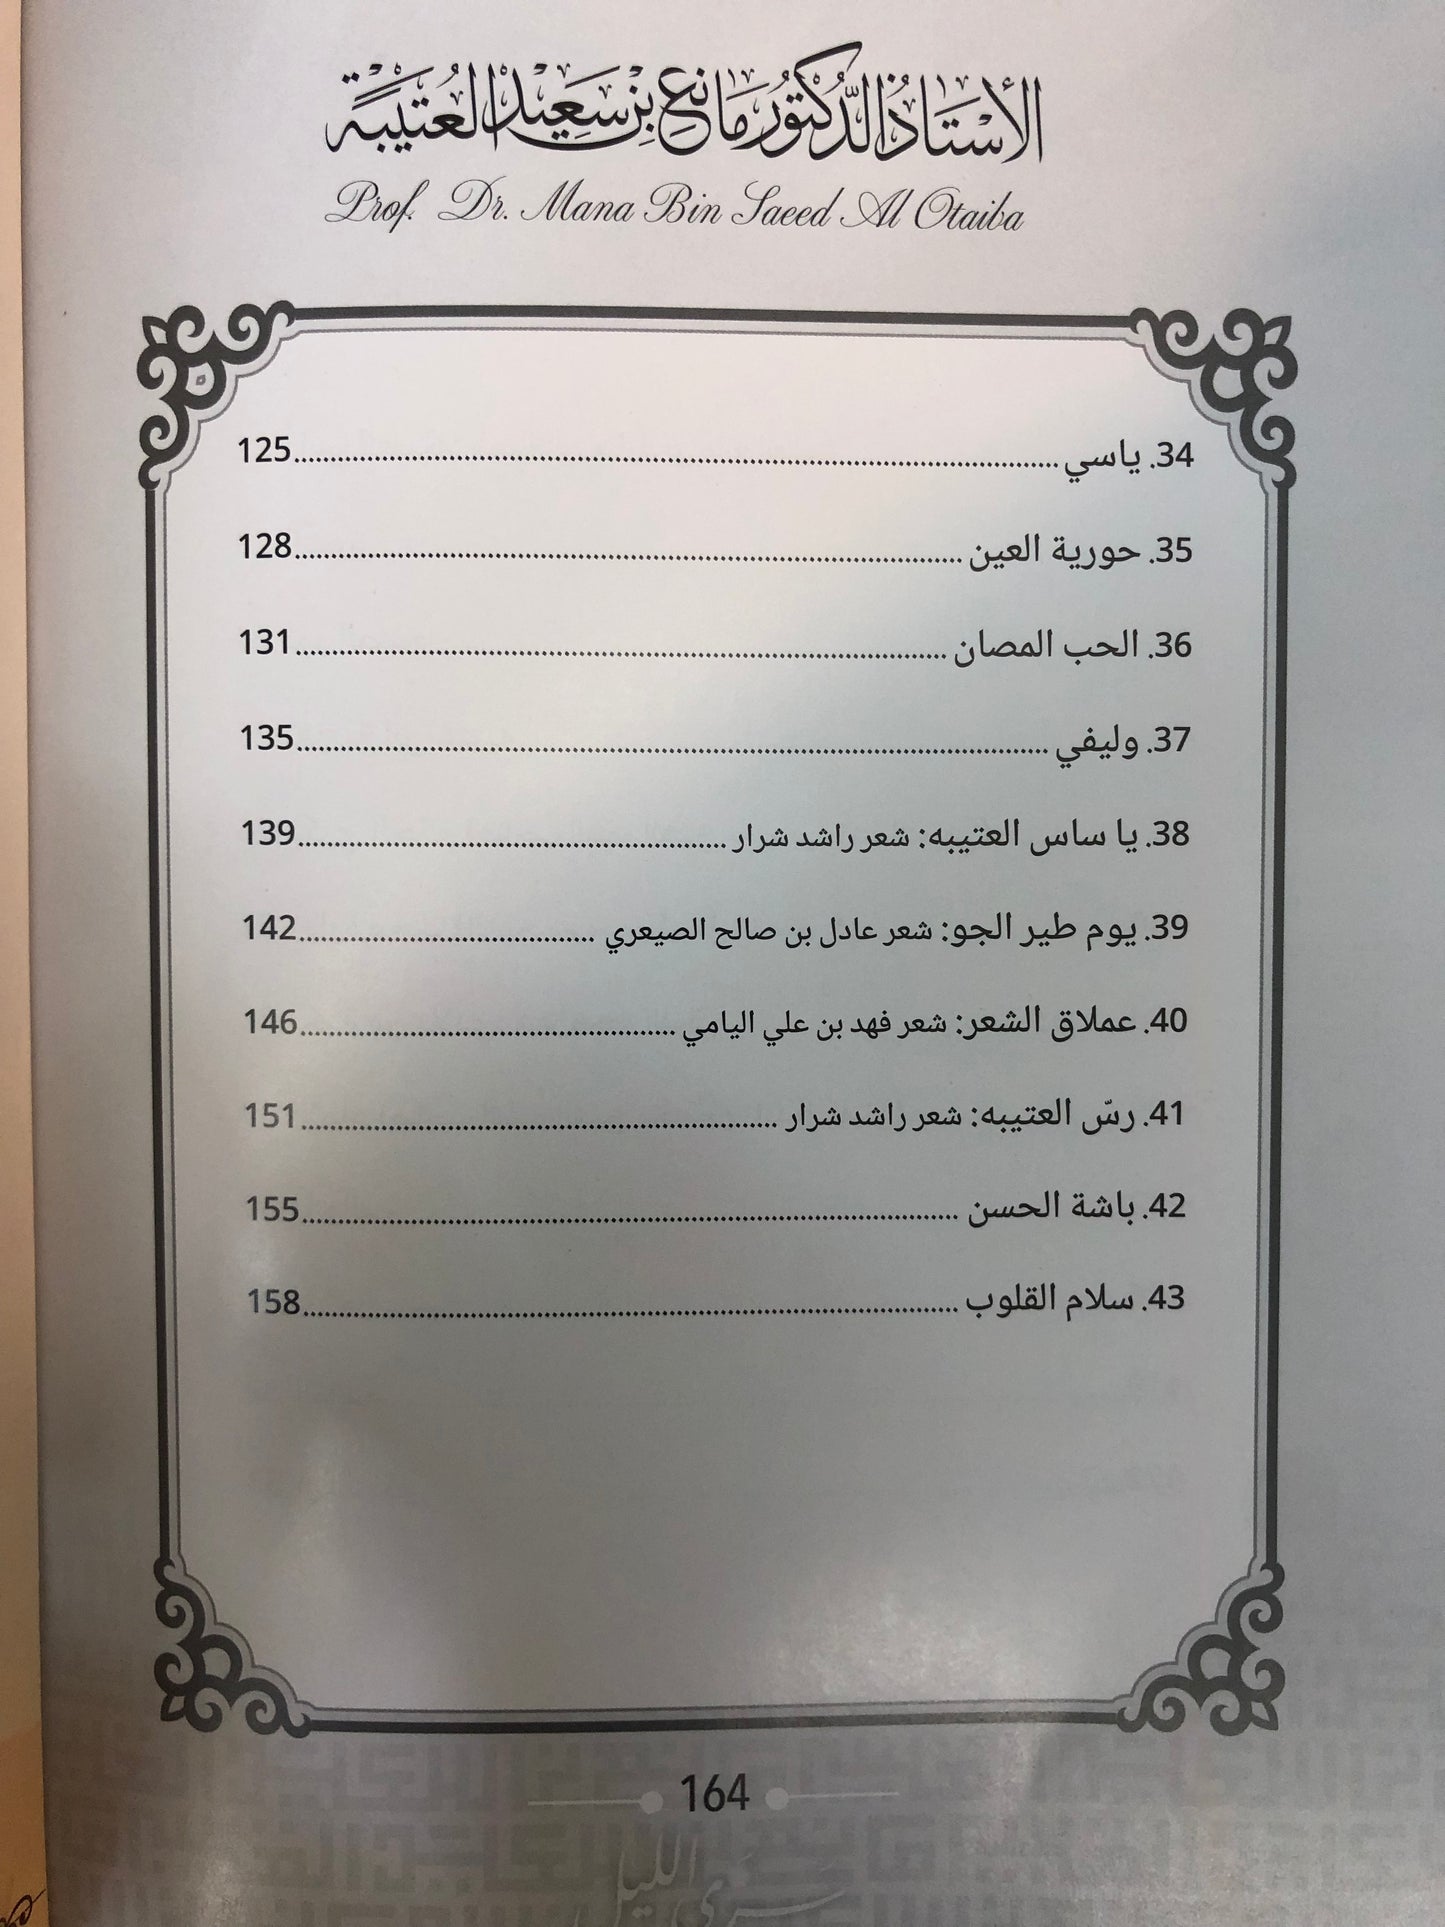 الأستاذ الدكتور مانع بن سعيد العتيبة
Prof. Dr. Mana Bin Saeed Al Otaiba
34. ياسي ........ 125
35. حورية العين ........ 128
36. الحب المصان ........ 131
37. وليفي ........ 135
38. يا ساس العتيبه: شعر راشد شرار ........ 139
39. يوم طير الجو: شعر عادل بن صالح الصيعري ........ 142
40. عملاق الشعر: شعر فهد بن علي اليامي ........ 146
41. رسّ العتيبه: شعر راشد شرار ........ 151
42. باشة الحسن ........ 155
43. سلام القلوب ........ 158
164
سرى الليل